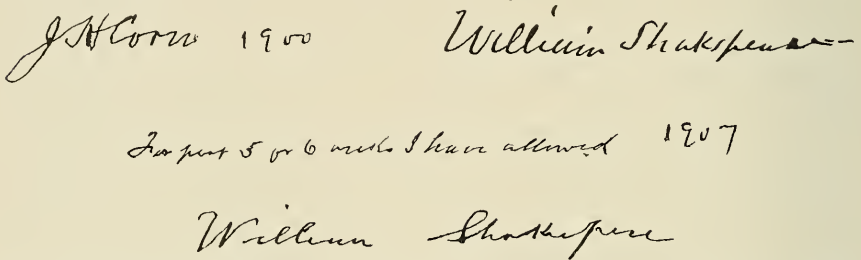 J H Corn 1900 William Shakspeare
For past 5 or 6 weeks I have allowed 1907
William Shakespere